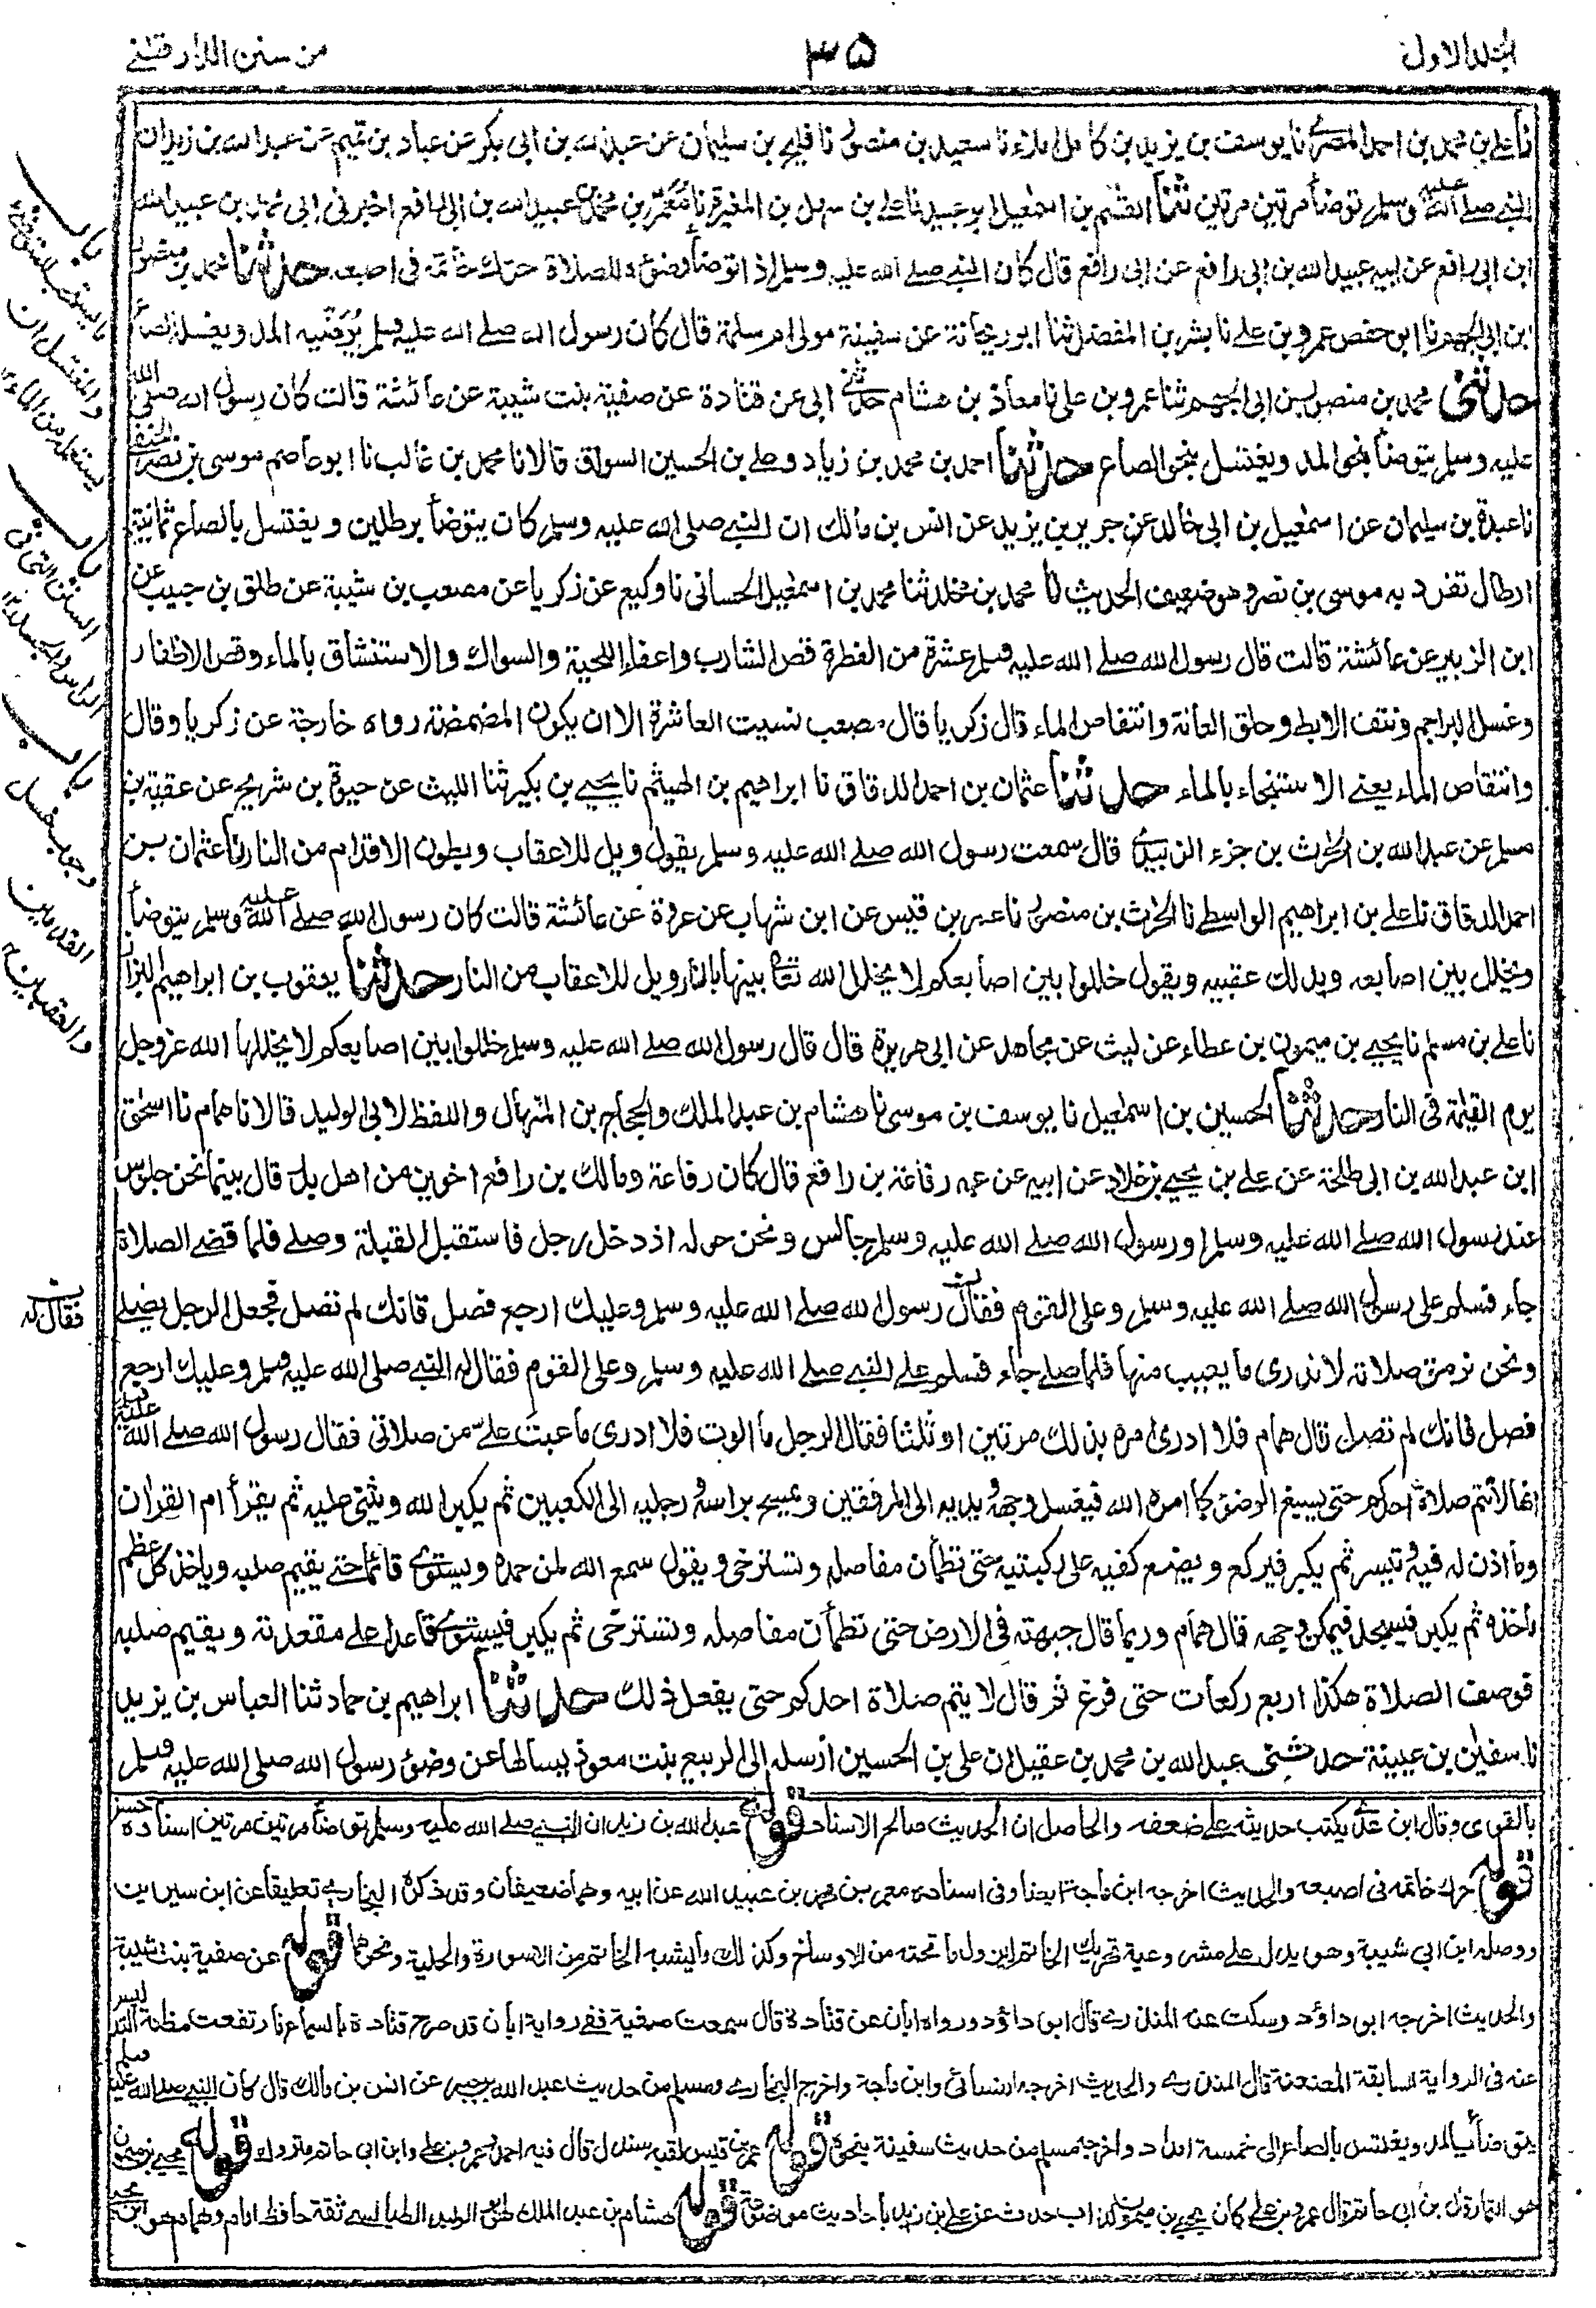 الجلد الاول
٣٥
من سنن الدارقطني
نا علي بن محمد بن احمد المصري نا يوسف بن يزيد بن كامل نا سعيد بن منصور نا فليح بن سليمان عن عبد الله بن ابى بكر عن عباد بن تميم عن عبد الله بن زيد ان
النبي صلے الله عليه وسلم توضأ مرتين مرتين ثنا القسم بن اسمعيل نا علے بن سهل بن المغيرة نا معمر بن محمد بن عبيد الله بن ابى رافع اخبرنى ابى محمد بن عبيد الله
ابن ابى رافع عن ابيه عبيد الله بن ابى رافع عن ابى رافع قال كان النبي صلے الله عليه وسلم اذا توضأ وضوءه للصلاة حرك خاتمه فى اصبعه حدثنا محمد بن منصور
بن ابى الجهم نا ابو حفص عمرو بن علے نا بشر بن المفضل ثنا ابو ريحانة عن سفينة مولى ام سلمة قال كان رسول الله صلے الله عليه وسلم يوضئه المد ويغسله الصاع
حدثنى محمد بن منصور بن ابى الجهم ثنا عمرو بن على نا معاذ بن هشام حدثنى ابى عن قتادة عن صفية بنت شيبة عن عائشة قالت كان رسول الله صلى الله
عليه وسلم يتوضأ بنحو المد ويغتسل بنحو الصاع حدثنا احمد بن محمد بن زياد وعلے بن الحسين السواق قالا نا محمد بن غالب نا ابو عاصم موسى بن نصر الحنفى
نا عبدة بن سليمان عن اسمعيل بن ابى خالد عن جرير بن يزيد عن انس بن مالك ان النبي صلى الله عليه وسلم كان يتوضأ برطلين ويغتسل بالصاع ثمانية
ارطال تفرد به موسى بن نصر وهو ضعيف الحديث نا محمد بن مخلد ثنا محمد بن اسمعيل الحسانى نا وكيع عن زكريا عن مصعب بن شيبة عن طلق بن حبيب عن
ابن الزبير عن عائشة قالت قال رسول الله صلے الله عليه وسلم عشرة من الفطرة قص الشارب واعفاء اللحية والسواك والاستنشاق بالماء وقص الاظفار
وغسل البراجم ونتف الابط وحلق العانة وانتقاص الماء قال زكريا قال مصعب نسيت العاشرة الا ان يكون المضمضة رواه خارجة عن زكريا وقال
وانتقاص الماء يعنے الاستنجاء بالماء حدثنا عثمان بن احمد الدقاق نا ابراهيم بن الهيثم نا يحيے بن بكير ثنا الليث عن حيوة بن شريح عن عقبة بن
مسلم عن عبد الله بن الحرث بن جزء الزبيدي قال سمعت رسول الله صلے الله عليه وسلم يقول ويل للاعقاب وبطون الاقدام من النار نا عثمان بن
احمد الدقاق نا علے بن ابراهيم الواسطے نا الحرث بن منصور نا عمر بن قيس عن ابن شهاب عن عروة عن عائشة قالت كان رسول الله صلے الله عليه وسلم يتوضأ
ويخلل بين اصابعه ويدلك عقبيه ويقول خللوا بين اصابعكم لا يخلل الله تعالى بينها بالنار ويل للاعقاب من النار حدثنا يعقوب بن ابراهيم البزاز
نا علے بن مسلم نا يحيے بن ميمون بن عطاء عن ليث عن مجاهد عن ابى هريرة قال قال رسول الله صلے الله عليه وسلم خللوا بين اصابعكم لا يخللها الله عز وجل
يوم القيمة فى النار حدثنا الحسين بن اسمعيل نا يوسف بن موسى نا هشام بن عبد الملك والحجاج بن المنهال واللفظ لابى الوليد قالا نا همام نا اسحق
ابن عبد الله بن ابى طلحة عن علے بن يحيے بن خلاد عن ابيه عن عمه رفاعة بن رافع قال كان رفاعة ومالك بن رافع اخوين من اهل بدر قال بينما نحن جلوس
عند رسول الله صلے الله عليه وسلم او رسول الله صلے الله عليه وسلم جالس ونحن حوله اذ دخل رجل فاستقبل القبلة وصلے فلما قضے الصلاة
جاء فسلم على رسول الله صلے الله عليه وسلم وعلى القوم فقال رسول الله صلے الله عليه وسلم وعليك ارجع فصل فانك لم تصل فجعل الرجل يصلے
ونحن نرمق صلاته لا ندرى ما يعيب منها فلما صلے جاء فسلم علے النبي صلے الله عليه وسلم وعلى القوم فقال له النبي صلى الله عليه وسلم وعليك ارجع
فصل فانك لم تصل قال همام فلا ادرى امره بذلك مرتين او ثلثا فقال الرجل ما الوت فلا ادرى ما عبت علے من صلاتى فقال رسول الله صلے الله عليه وسلم
انها لا تتم صلاة احدكم حتى يسبغ الوضوء كما امره الله فيغسل وجهه ويديه الى المرفقين ويمسح براسه ورجليه الى الكعبين ثم يكبر الله ويثنى عليه ثم يقرأ ام القران
وما اذن له فيه وتيسر ثم يكبر فيركع ويضع كفيه على ركبتيه حتى تطمأن مفاصله وتسترخى ويقول سمع الله لمن حمده ويستوي قائما حتے يقيم صلبه وياخذ كل عظم
مأخذه ثم يكبر فيسجد فيمكن وجهه قال همام وربما قال جبهته فى الارض حتى تطمأن مفاصله وتسترخى ثم يكبر فيستوي قاعدا علے مقعدته ويقيم صلبه
فوصف الصلاة هكذا اربع ركعات حتى فرغ ثم قال لا يتم صلاة احدكم حتى يفعل ذلك حدثنا ابراهيم بن حماد ثنا العباس بن يزيد
نا سفين بن عيينة حدثنى عبد الله بن محمد بن عقيل ان على بن الحسين ارسله الى الربيع بنت معوذ يسالها عن وضوء رسول الله صلى الله عليه وسلم
باب ما يستحب للمتوضئ والمغتسل ان يستعمله من الماء
باب السنن التى فى الراس والجسد
باب وجوب غسل القدمين والعقبين
فقال له
بالقوى وقال ابن عدي يكتب حديثه علے ضعفه والحاصل ان الحديث صالح الاسناد قوله عبد الله بن زيد ان النبي صلے الله عليه وسلم توضأ مرتين مرتين اسناده حسن
قوله حرك خاتمه فى اصبعه والحديث اخرجه ابن ماجة ايضا وفى اسناده معمر بن محمد بن عبيد الله عن ابيه وهما ضعيفان وقد ذكره البخاري تعليقا عن ابن سيرين
ووصله ابن ابي شيبة وهو يدل علے مشروعية تحريك الخاتم ليزول ما تحته من الاوساخ وكذلك ما يشبه الخاتم من الاسورة والحلية ونحوهما قوله عن صفية بنت شيبة
والحديث اخرجه ابو داؤد وسكت عنه المنذري قال ابو داؤد ورواه ابان عن قتادة قال سمعت صفية ففے رواية ابان قد صرح قتادة بالسماع فارتفعت مظنة التدليس
عنه فى الرواية السابقة المعنعنة قال المنذري والحديث اخرجه النسائى وابن ماجة واخرج البخاري ومسلم من حديث عبد الله بن جبر عن انس بن مالك قال كان النبي صلے الله عليه وسلم
يتوضأ بالمد ويغتسل بالصاع الى خمسة امداد واخرجه مسلم من حديث سفينة بنحوه قوله عمر بن قيس لقبه سندل قال فيه احمد وعمرو بن علے وابن ابى حاتم متروك قوله يحيے بن ميمون
هو التمار قال بن ابى حاتم قال عمرو بن علے كان يحيے بن ميمون كذاب حدث عن علے بن زيد باحاديث موضوعة قوله هشام بن عبد الملك هو ابو الوليد الطيالسے ثقة حافظ امام وهمام هو ابن يحيے